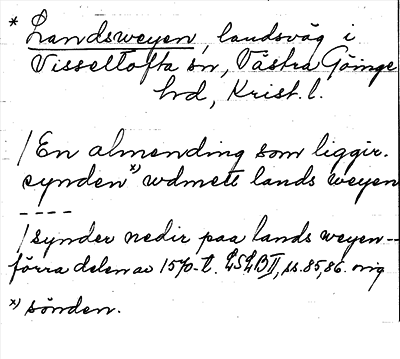 * Landsweyen, landsväg i
Visseltofta sn, Västra Göinge
hd, Krist. l.
/En almending som liggir.
synden*) wdmett lands weyen
----
/synder nedir paa lands weyen--
förra delen av 1570-t. LSLB II, ss. 85, 86. orig
*) sönden.